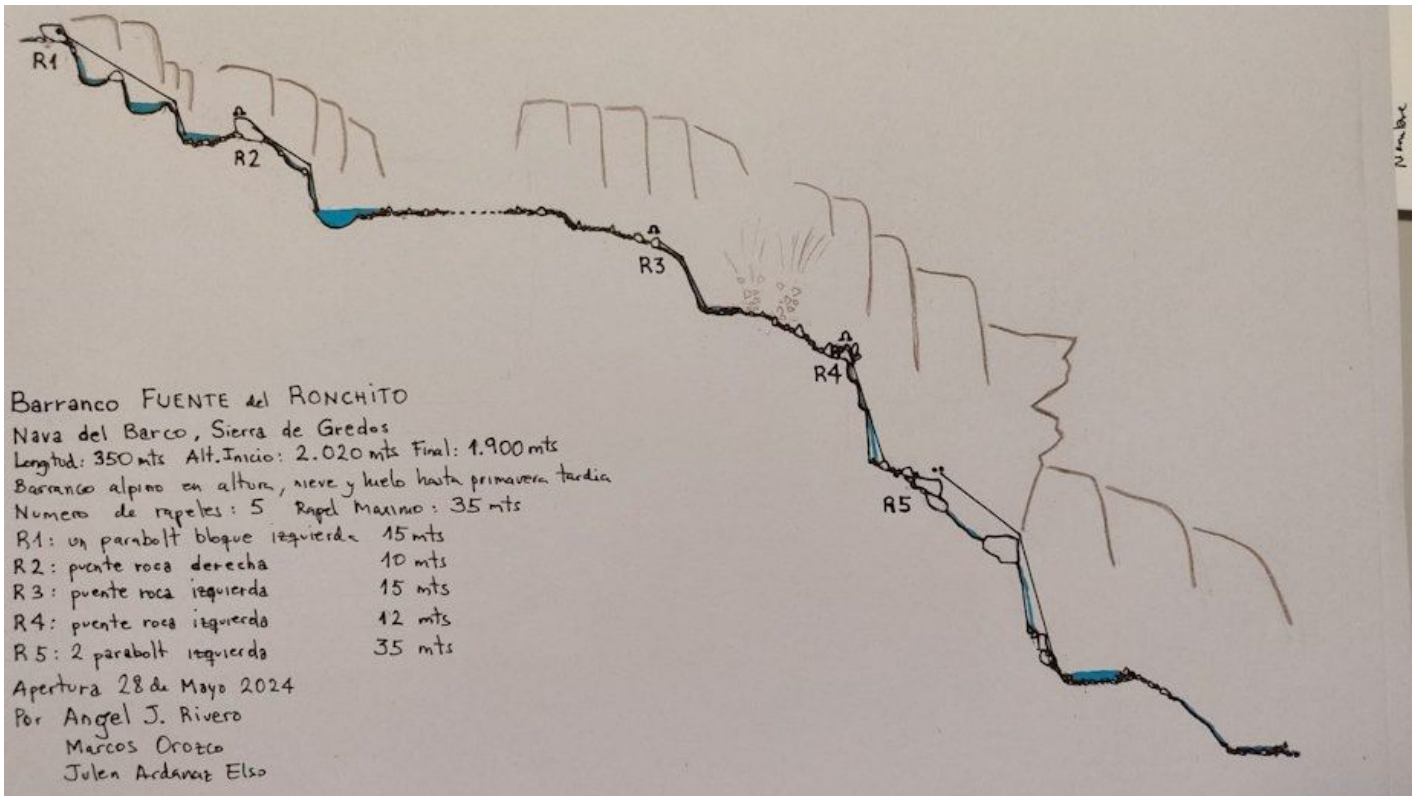 R1
R2
R3
R4
R5
Barranco FUENTE del RONCHITO
Nava del Barco, Sierra de Gredos
Longitud: 350 mts Alt. Inicio: 2.020 mts Final: 1.900 mts
Barranco alpino en altura, nieve y hielo hasta primavera tardia
Numero de rapeles: 5 Rapel Maximo: 35 mts
R1: un parabolt bloque izquierda 15 mts
R2: puente roca derecha 10 mts
R3: puente roca izquierda 15 mts
R4: puente roca izquierda 12 mts
R5: 2 parabolt izquierda 35 mts
Apertura 28 de Mayo 2024
Por Angel J. Rivero
Marcos Orozco
Julen Ardanaz Elso
Nombre